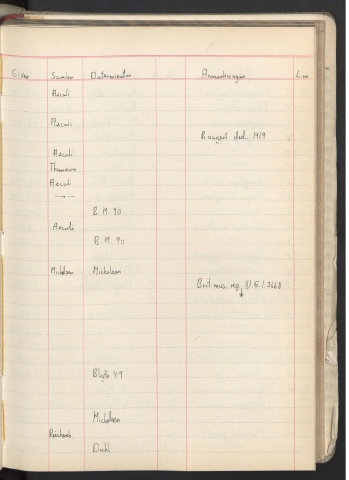 Giver Samler Determinator Anmærkninger L. nr.
Ascoli
Ascoli
Bangert ded. 1919
Ascoli
Thomsen
Ascoli
— " —
B. M. 90
Ascoli
B. M. 90
Mickelsen Mickelsen
Brit. mus. reg. 81.6.1.3668
↓
Blyth 49
Mickelsen
Reichenb.
Dahl